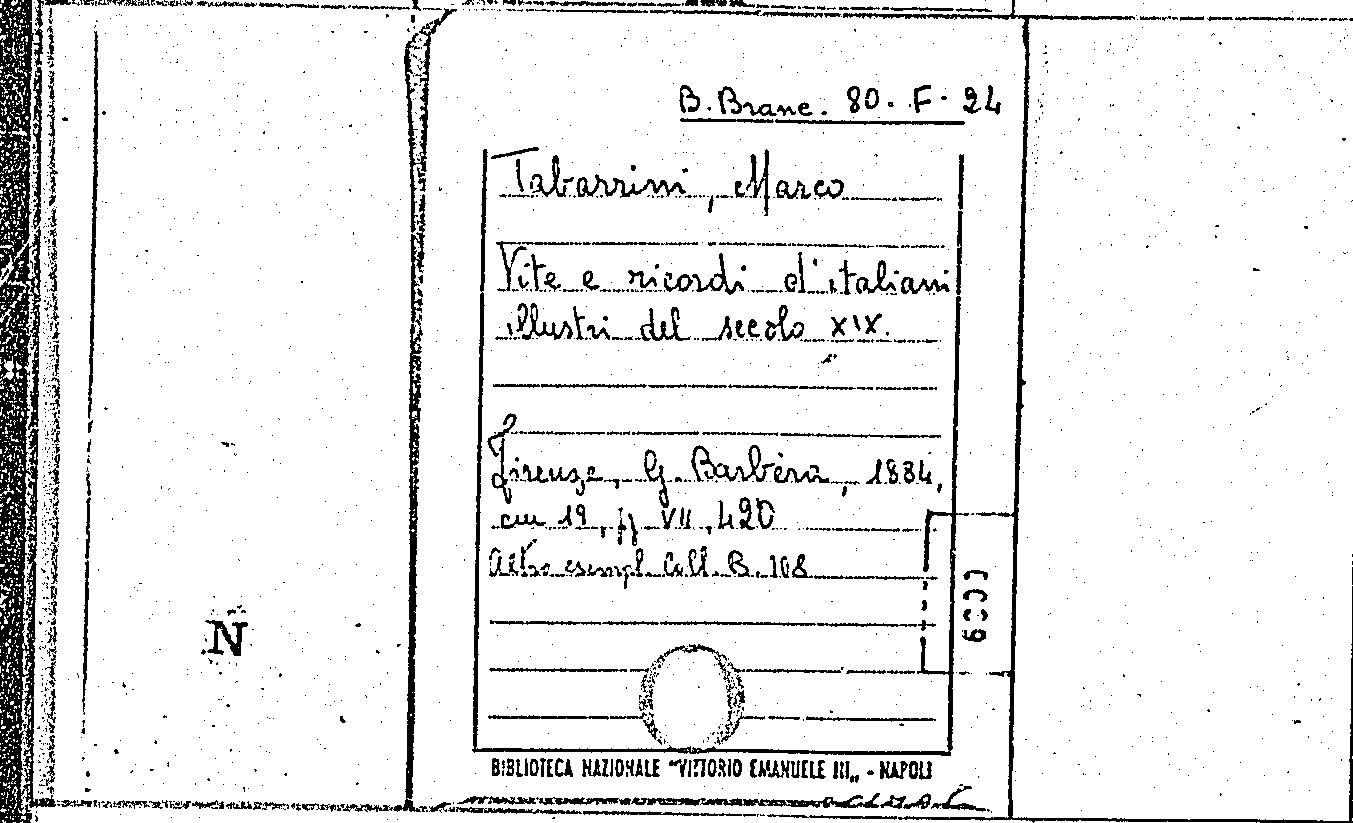 B. Branc. 80. F. 24
Tabarrini, Marco
Vite e ricordi d'italiani
illustri del secolo XIX.
Firenze, G. Barbèra, 1884,
cm 19, pp VII, 420
Altro esempl. Coll. B. 108
N
BIBLIOTECA NAZIONALE "VITTORIO EMANUELE III„ - NAPOLI